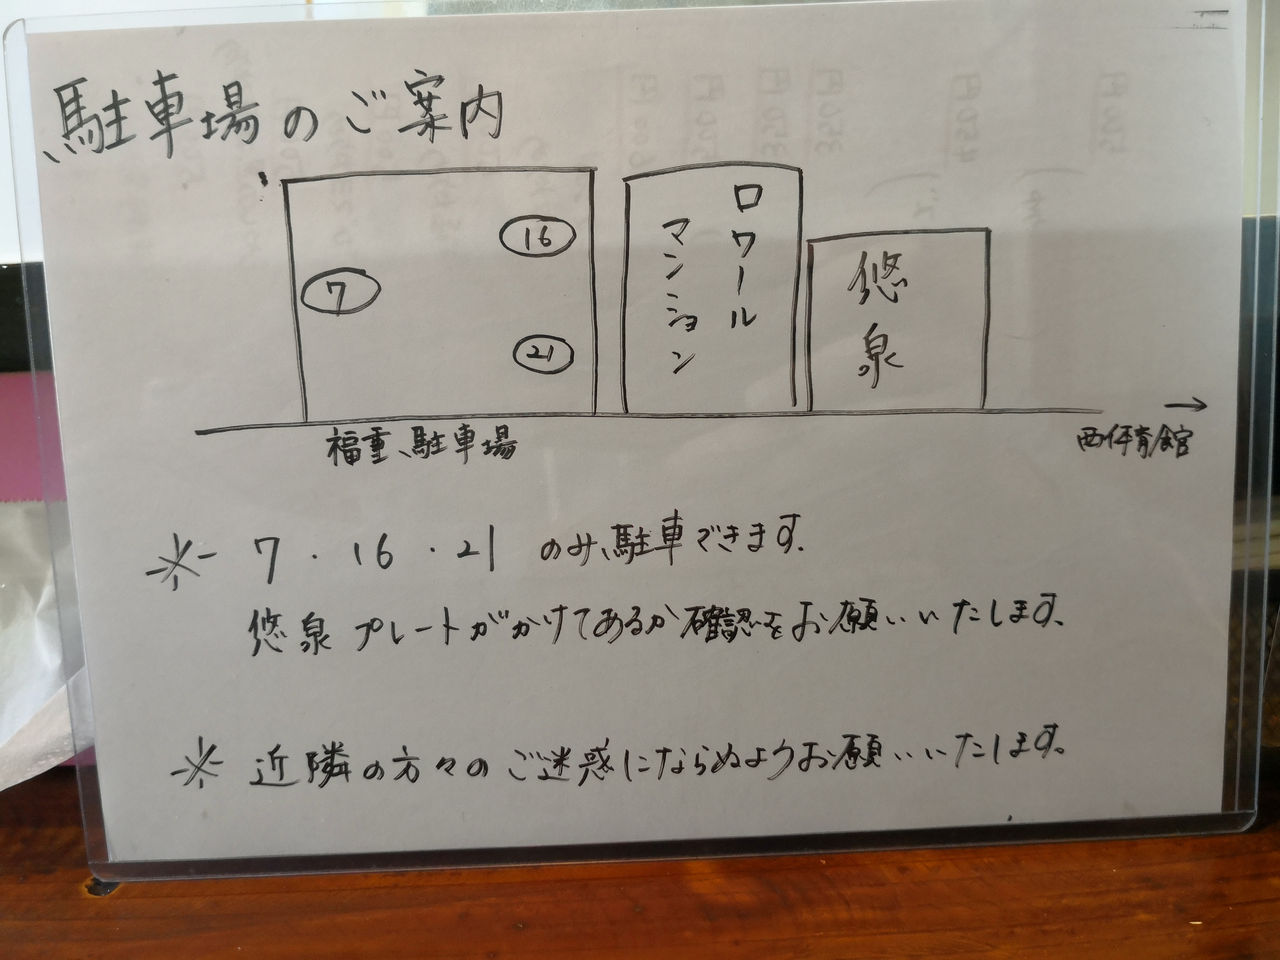 駐車場のご案内
16
7
21
ロワール
マンション
悠泉
福重駐車場
→
西体育館
※ 7・16・21 のみ駐車できます。
悠泉プレートがかけてあるか確認をお願いいたします。
※ 近隣の方々のご迷惑にならぬようお願いいたします。